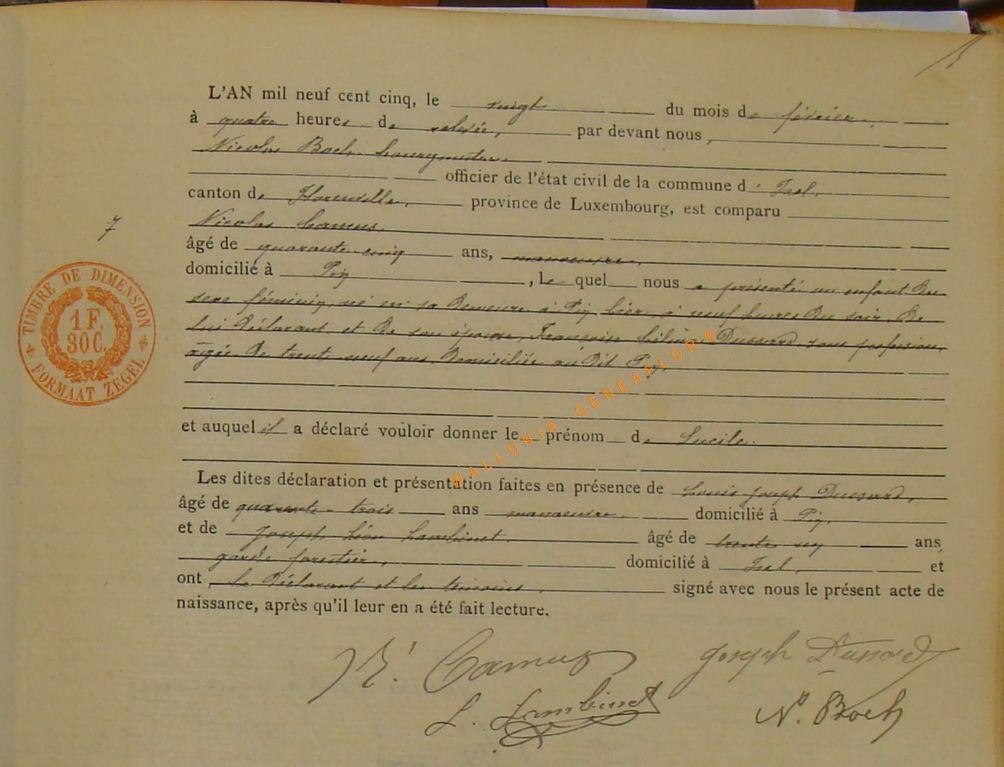 L'AN mil neuf cent cinq, le vingt du mois de février,
à quatre heures de relevée, par devant nous,
Nicolas Boch, bourgmestre
officier de l'état civil de la commune d'Izel,
canton de Florenville, province de Luxembourg, est comparu
Nicolas Camus,
7
âgé de quarante cinq ans, manoeuvre,
domicilié à Pin, lequel nous a présenté un enfant du
sexe féminin, né en sa demeure à Pin hier, à neuf heures du soir, de
lui déclarant et de son épouse, Françoise Dussard, sans profession,
âgée de trente neuf ans domiciliée au dit Pin
et auquel il a déclaré vouloir donner le prénom de Lucile.
Les dites déclaration et présentation faites en présence de Louis Joseph Dussard,
âgé de quarante-trois ans manoeuvre domicilié à Pin,
et de Joseph Léon Lambinet, âgé de trente ans,
garde forestier, domicilié à Izel, et
ont le déclarant et les témoins, signé avec nous le présent acte de
naissance, après qu'il leur en a été fait lecture.
TIMBRE DE DIMENSION
1 F.
30 C.
FORMAAT ZEGEL
WALLONIA GENEAFLORE
N. Camus
Joseph Dussard
L. Lambinet
N. Boch